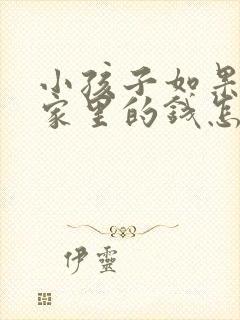 小孩子如果
家里的钱怎
伊靈